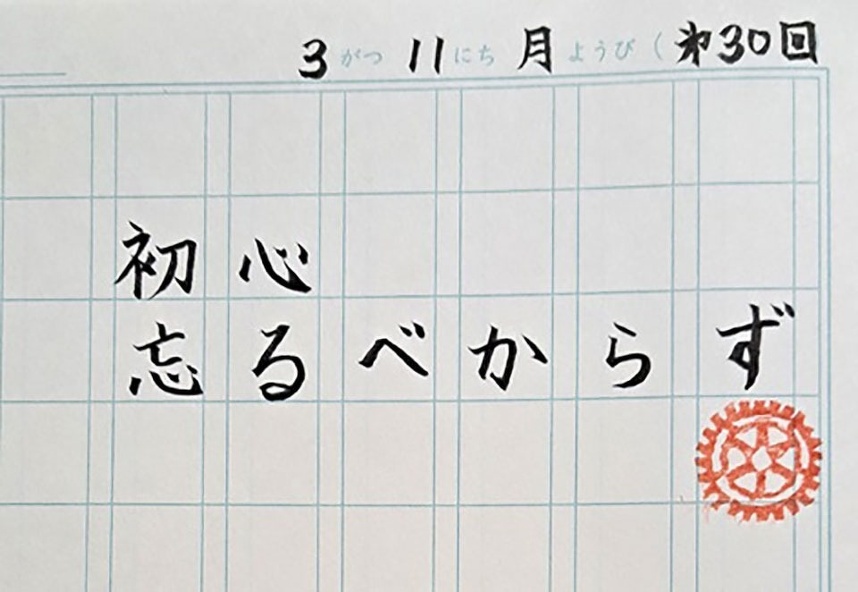 3がつ11にち月ようび(第30回
初心
忘るべからず